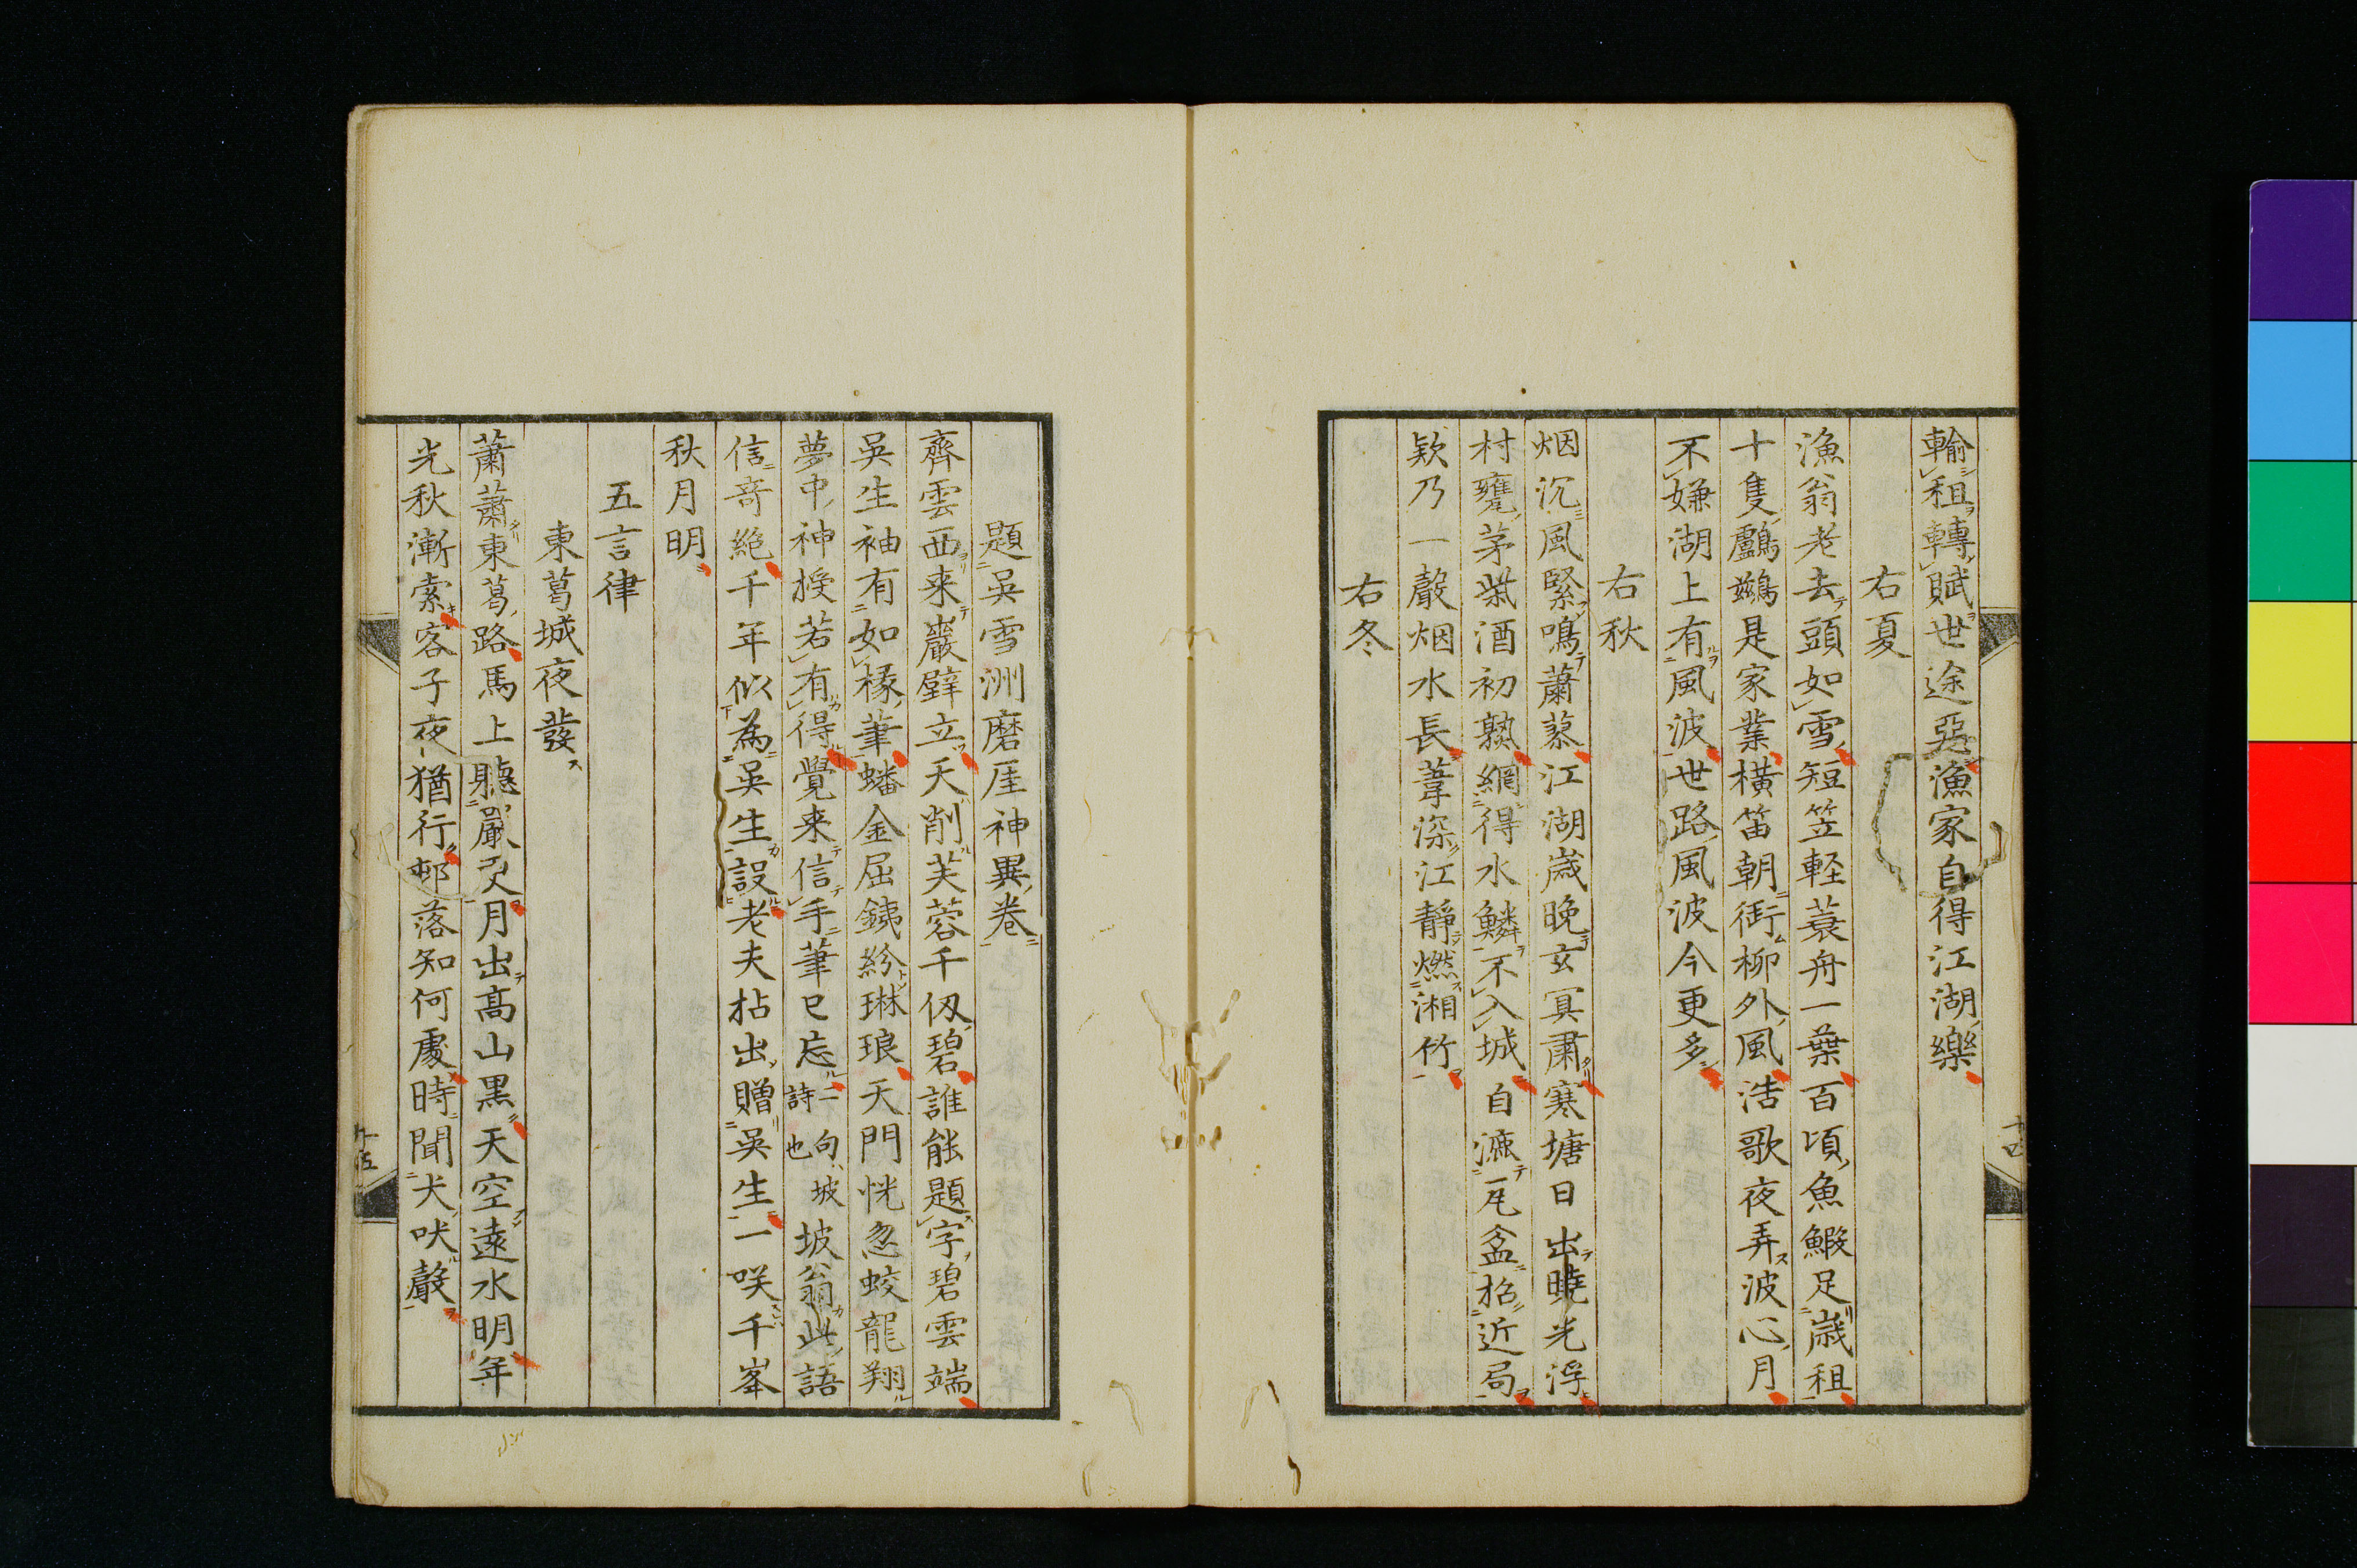 輸租轉賦世途惡漁家自得江湖樂
右夏
漁翁老去頭如雪短笠輕蓑舟一葉百頃魚鰕足歲租
十隻鸕鷀是家業橫笛朝衝柳外風浩歌夜弄波心月
不嫌湖上有風波世路風波今更多
右秋
烟沉風緊鳴蕭蓼江湖歲晚玄冥肅寒塘日出曉光浮
村甕茅柴酒初熟網得水鱗不入城自漉瓦盆招近局
欵乃一聲烟水長葦深江靜燃湘竹
右冬
題吳雪洲磨厓神異卷
齊雲西来巖壁立天削芙蓉千仭碧誰能題字碧雲端
吳生袖有如椽筆蟠金屈鐵紛琳琅天門恍忽蛟龍翔
夢中神授若有得覺来信手筆已忘一句坡詩也坡翁此語
信竒絶千年似為吳生設老夫拈出贈吳生一咲千峯
秋月明
五言律
東葛城夜發
蕭蕭東葛路馬上聽嚴更月出高山黒天空遠水明年
光秋漸索客子夜猶行邨落知何處時聞犬吠聲